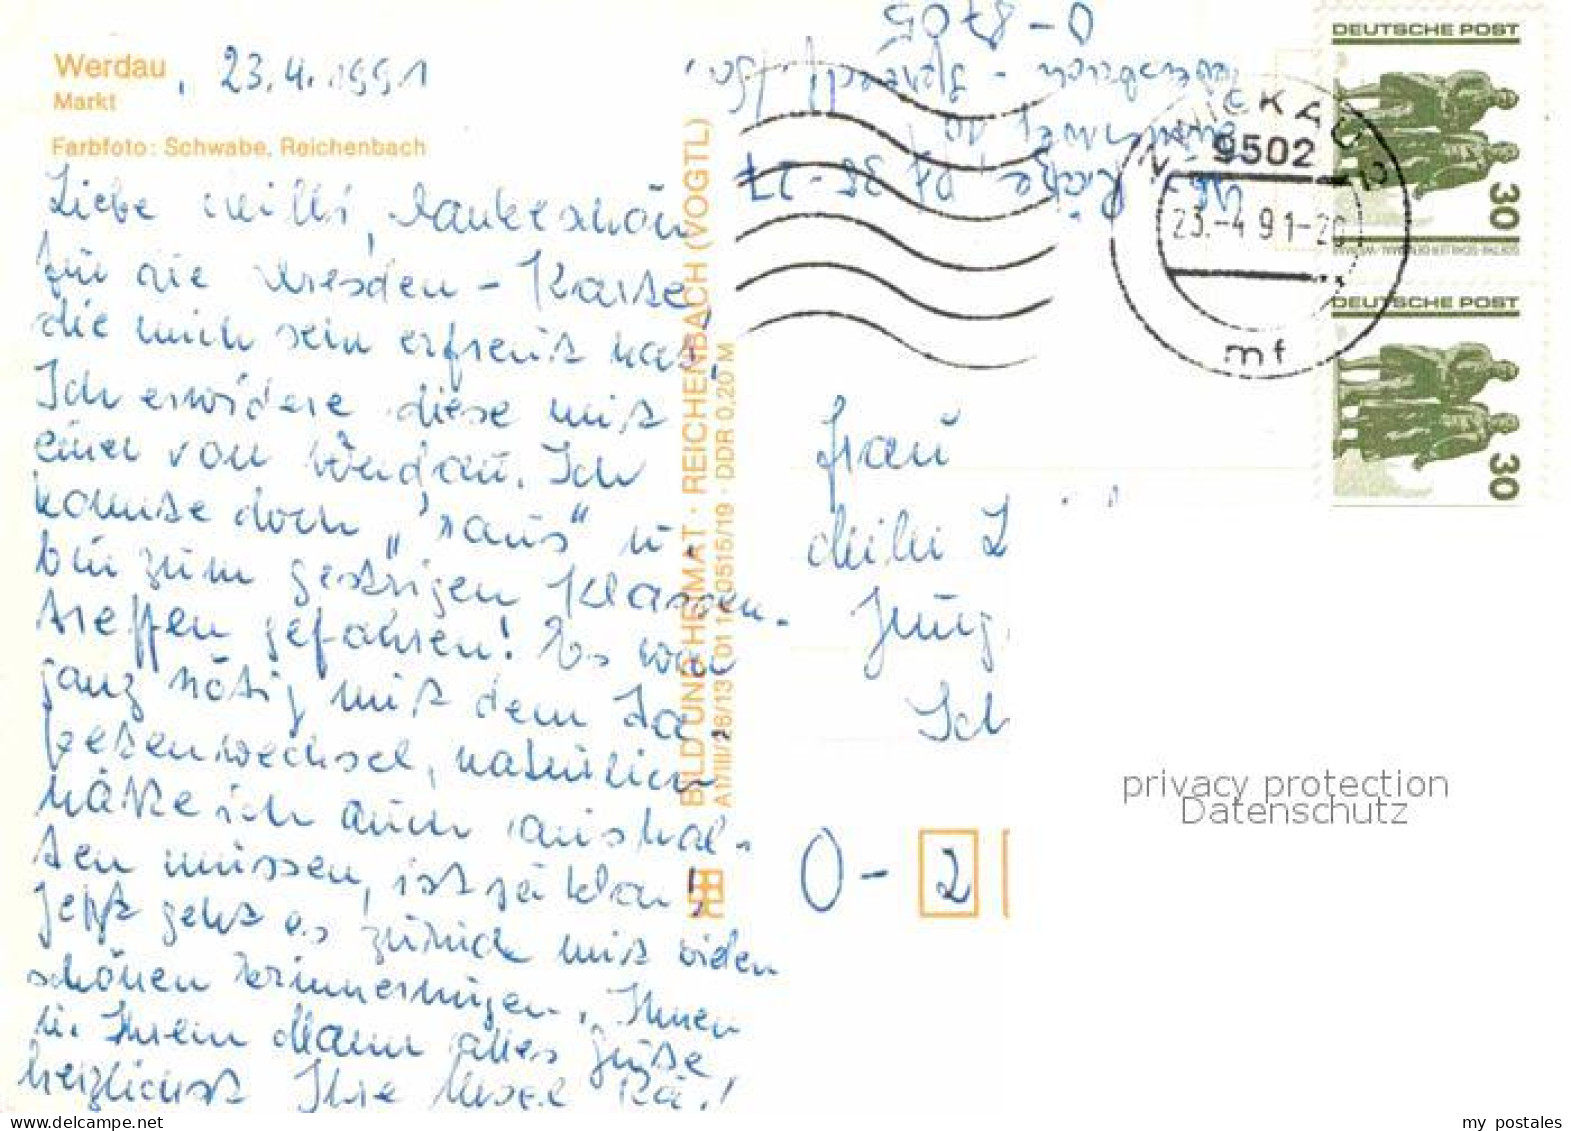 Werdau, 23.4.1991
Markt
Farbfoto: Schwabe, Reichenbach
Liebe Milli, Dankeschön
für die Dresden - Karte,
die mich sehr erfreut hat.
Ich erwidere diese mit
einer von Werdau. Ich
konnte doch "raus" u.
bin zum gestrigen Klassen-
treffen gefahren! Es war
ganz nötig mit dem Ta-
petenwechsel, natürlich
hätte ich auch aushal-
ten müssen, ist ja klar!
Jetzt geht es zurück mit vielen
schönen Erinnerungen. Ihnen
u. Ihrem Mann alles Gute
herzlichst Ihre
BILD UND HEIMAT · REICHENBACH (VOGTL)
A1/III/26/13 01 14 0515/19 · DDR 0,20 M
O-8705
9502
23.-4.91-20
mf
DEUTSCHE POST
30
DEUTSCHE POST
30
Frau
Jung
Sch
O- 2
privacy protection
Datenschutz
my_postales